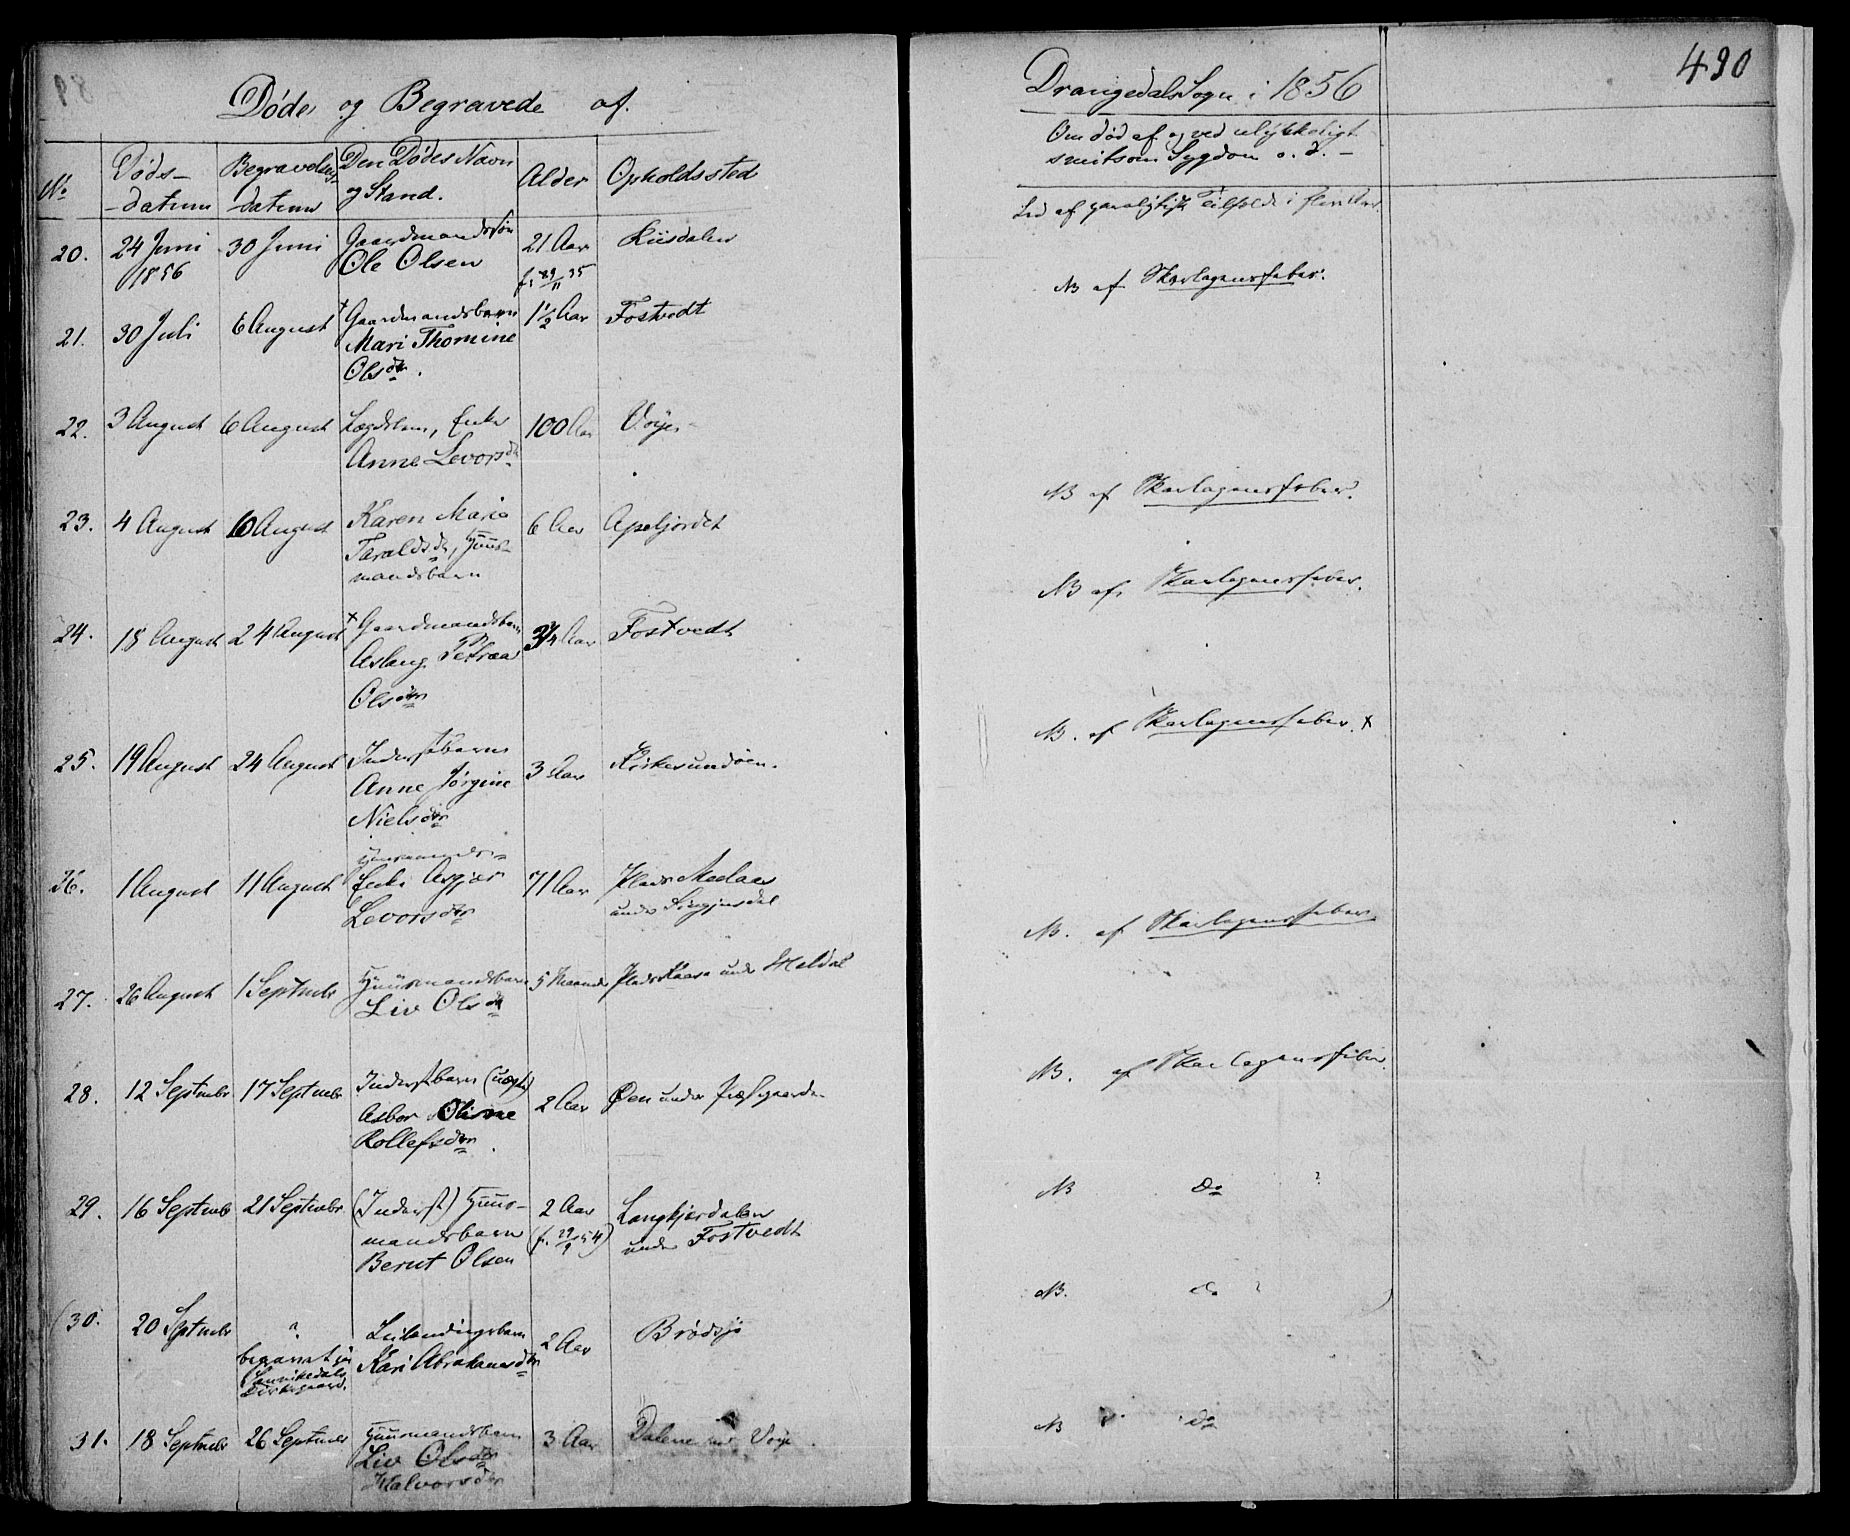 490
Døde og Begravede af
Drangedals Sogn i 1856
No
Døds-
-datum
Begravelses-
-datum
Den Dødes Navn
og Stand.
Alder
Opholdssted
Om død af og ved ulykkeligt
smitsom Sygdom o. d. -
20.
24 Juni
1856
30 Juni
Gaardmandssøn
Ole Olsen
21 Aar
Riisdalen
Led af paralytisk Tilfælde i flere Aar.
21.
30 Juli
6 August
Gaardmandsbarn
Mari Thomine
Olsdtr.
1½ Aar
Fostvedt
NB af Skarlagensfeber.
22.
3 August
6 August
Lægdslem, Enke
Anne Levorsd
100 Aar
Voje
23.
4 August
10 August
Karen Marie
Taraldsd, Huus-
mandsbarn
6 Aar
Apeljordet
NB af Skarlagensfeber.
24.
18 August
24 August
+ Gaardmandsbarn
Aslaug Petraa
Olsdtr
3¼ Aar
Fostvedt
NB af Skarlagensfeber.
25.
19 August
24 August
Inderstbarn
Anne Jørgine
Nielsdtr
3 Aar
Kirkesundøen.
NB. af Skarlagensfeber. x
26.
1 August
11 August
Huusmands-
Enke Asgjær
Levorsdtr
71 Aar
Plads Medaas
under
27.
26 August
1 Septmbr
Huusmandsbarn
Liv Olsd
5 Maaneder
Plads Kaasa under Heldal
NB. af Skarlagensfeber
28.
12 Septmbr
17 Septmbr
Inderstbarn (uægte)
Asbor Olivne
Rollefsdtr.
2 Aar
Øen under Præstegaarden
NB. af Skarlagensfeber.
29.
16 Septmbr
21 Septmbr
(Inderst) Huus-
mandsbarn
Bernt Olsen
2 Aar
(f. 29/9 54)
Langkjærdalen
under Fostvedt
NB Do
(30.
20 Septmbr
"
begravet paa
Sannikedals
Kirkegaard.
Leilændingsbarn
Kari Abrahamsdtr
2 Aar
Brødsjø
NB. Do )
31.
18 Septmbr
26 Septmbr
Huusmandsbarn
Liv Olsdtr
Halvorsdtr
3 Aar
Dalene und Voje.
NB Do